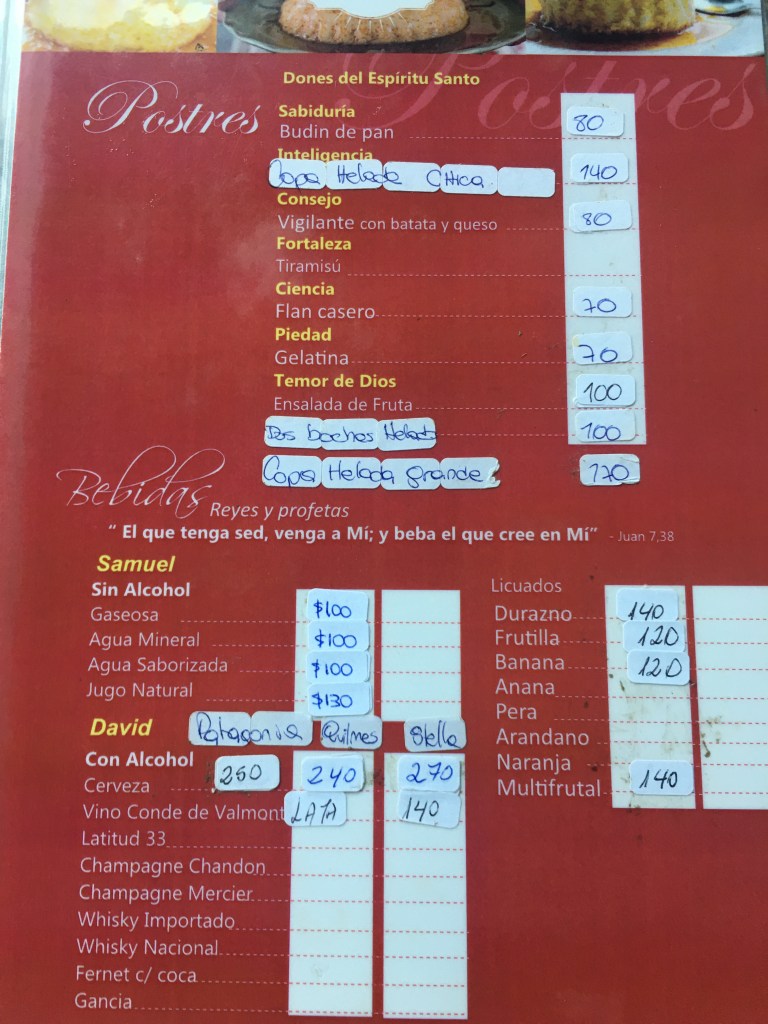 Postres
Dones del Espíritu Santo
Sabiduría
Budin de pan 80
Inteligencia
Copa Helada CHica 140
Consejo
Vigilante con batata y queso 80
Fortaleza
Tiramisú
Ciencia
Flan casero 70
Piedad
Gelatina 70
Temor de Dios
Ensalada de Fruta 100
Dos bochas Helado 100
Copa Helada grande 170
Bebidas Reyes y profetas
“ El que tenga sed, venga a Mí; y beba el que cree en Mí” - Juan 7,38
Samuel
Sin Alcohol
Gaseosa $100
Agua Mineral $100
Agua Saborizada $100
Jugo Natural $130
Licuados
Durazno 140
Frutilla 120
Banana 120
Anana
Pera
Arandano
Naranja
Multifrutal 140
David Patagonia Quilmes Stella
Con Alcohol
Cerveza 250 240 270
Vino Conde de Valmont LATA 140
Latitud 33
Champagne Chandon
Champagne Mercier
Whisky Importado
Whisky Nacional
Fernet c/ coca
Gancia